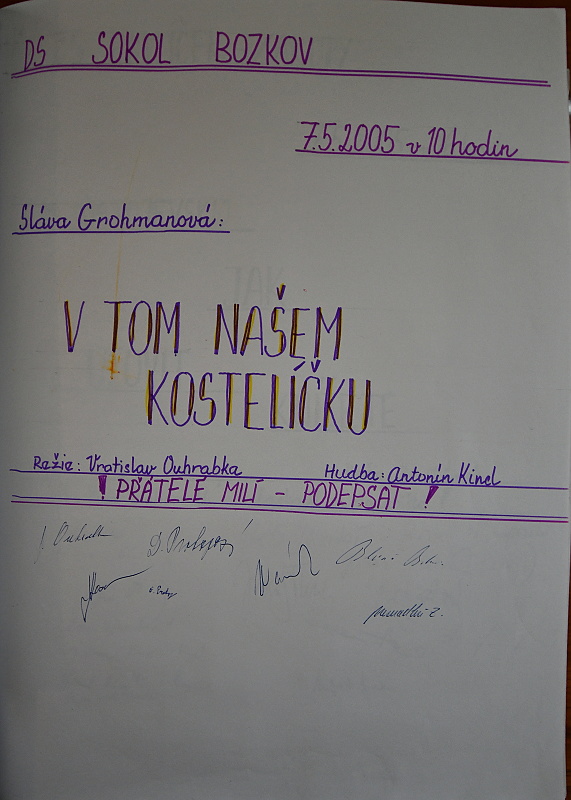 DS SOKOL BOZKOV
7.5.2005 v 10 hodin
Sláva Grohmanová:
V TOM NAŠEM
KOSTELÍČKU
Režie: Vratislav Ouhrabka Hudba: Antonín Kinel
! PŘÁTELÉ MILÍ - PODEPSAT !